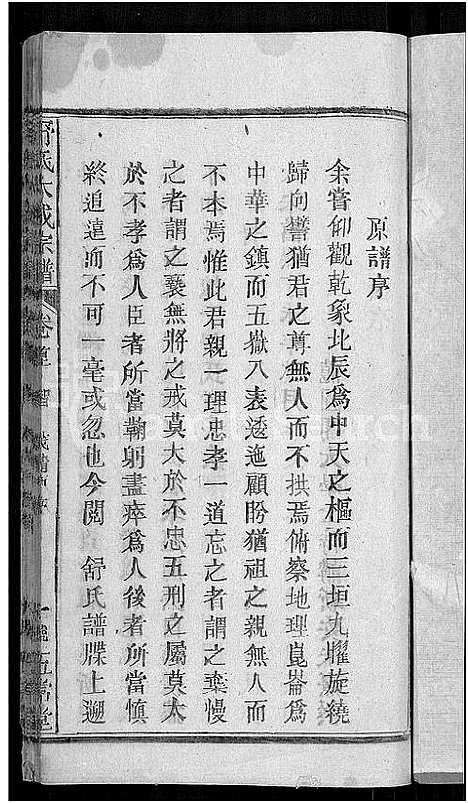 原譜序
余嘗仰觀乾象北辰爲中天之樞而三垣九曜旋繞
歸向譬猶君之尊無人而不拱焉俯察地理崑崙爲
中華之鎮而五嶽八表逶迤顧盼猶祖之親無人而
不本焉惟此君親一理忠孝一道忘之者謂之棄慢
之者謂之褻無將之戒莫大於不忠五刑之屬莫大
於不孝爲人臣者所當鞠躬盡瘁爲人後者所當慎
終追遠而不可一毫或忽也今閱 舒氏譜牒上遡
舒氏大成宗譜 卷首